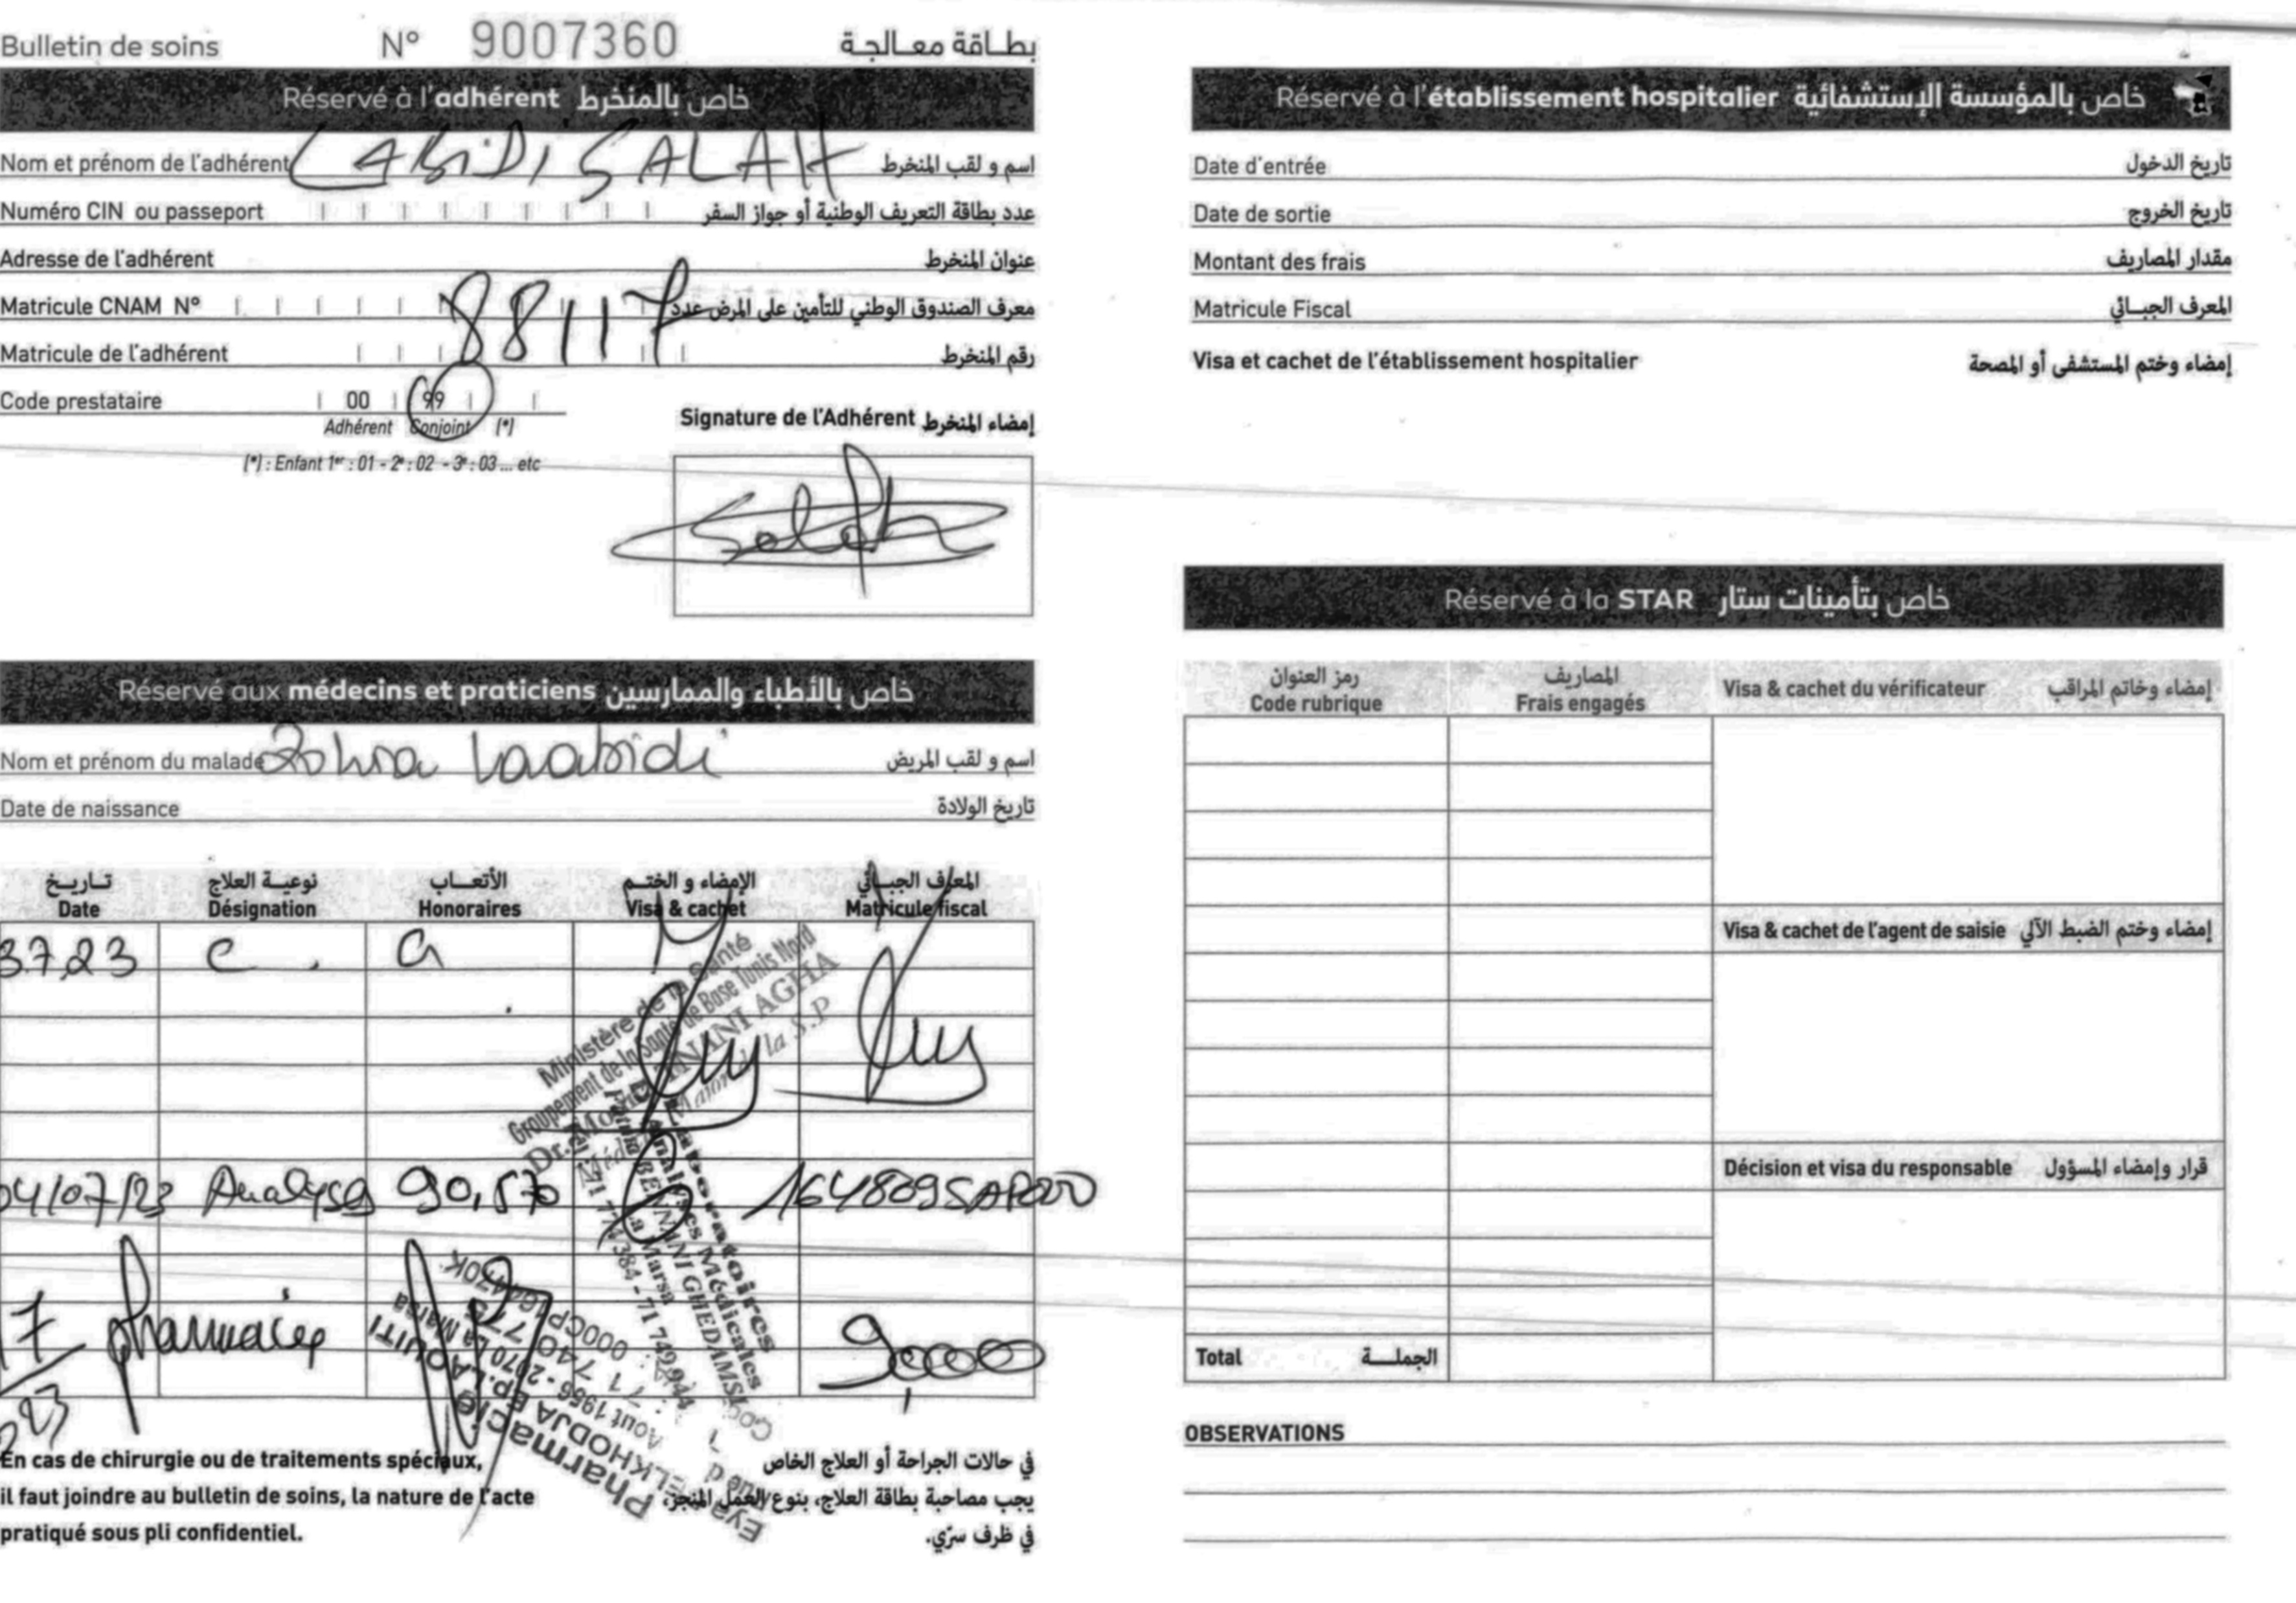 Bulletin de soins N° 9007360 بطاقة معالجة
Réservé à l'adhérent خاص بالمنخرط
Nom et prénom de l'adhérent LABIDI SALAH اسم و لقب المنخرط
Numéro CIN ou passeport عدد بطاقة التعريف الوطنية أو جواز السفر
Adresse de l'adhérent عنوان المنخرط
Matricule CNAM N° معرف الصندوق الوطني للتأمين على المرض عدد
Matricule de l'adhérent 88117 رقم المنخرط
Code prestataire 00 99
Adhérent Conjoint (*)
(*) : Enfant 1er : 01 - 2e : 02 - 3e : 03 ... etc
Signature de l'Adhérent إمضاء المنخرط
Salah
Réservé aux médecins et praticiens خاص بالأطباء والممارسين
Nom et prénom du malade Zohra Laabidi اسم و لقب المريض
Date de naissance تاريخ الولادة
تاريخ نوعية العلاج الأتعاب الإمضاء و الختم المعرف الجبائي
Date Désignation Honoraires Visa & cachet Matricule fiscal
3.7.23 C. G
Ministère de la Santé
Groupement de la Santé de Base Tunis Nord
AGHA
de la S.P
04/07/23 Analyses 90,570
Laboratoires
Analyses Médicales
BENNANI GHEDAMSI
La Marsa
71 774 384 - 71 749 944
7 pharmacie
23
Pharmacie
Eya BELKHODJA EP.LAOUITI
Aout 1956 - 2070 La Marsa
En cas de chirurgie ou de traitements spéciaux,
il faut joindre au bulletin de soins, la nature de l'acte
pratiqué sous pli confidentiel.
في حالات الجراحة أو العلاج الخاص
يجب مصاحبة بطاقة العلاج، بنوع العمل المنجز،
في ظرف سرّي.
Réservé à l'établissement hospitalier خاص بالمؤسسة الإستشفائية
Date d'entrée تاريخ الدخول
Date de sortie تاريخ الخروج
Montant des frais مقدار المصاريف
Matricule Fiscal المعرف الجبائي
Visa et cachet de l'établissement hospitalier إمضاء وختم المستشفى أو المصحة
Réservé à la STAR خاص بتأمينات ستار
رمز العنوان المصاريف
Code rubrique Frais engagés Visa & cachet du vérificateur إمضاء وخاتم المراقب
Visa & cachet de l'agent de saisie إمضاء وختم الضبط الآلي
Décision et visa du responsable قرار وإمضاء المسؤول
Total الجملة
OBSERVATIONS